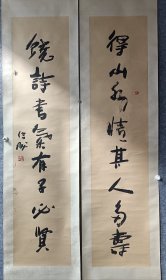 得山水情其人多壽
饒詩書氣有子必賢